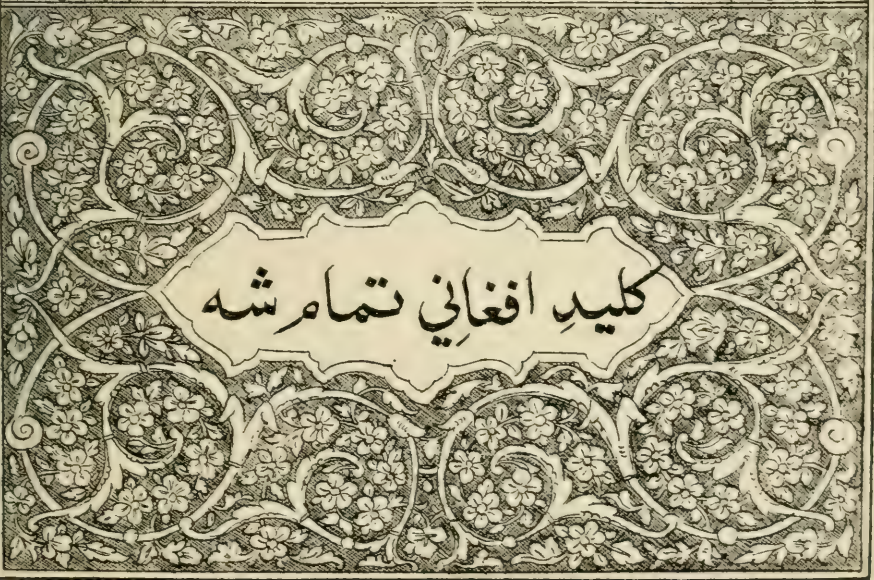 کلیدِ افغاِني تمام شه